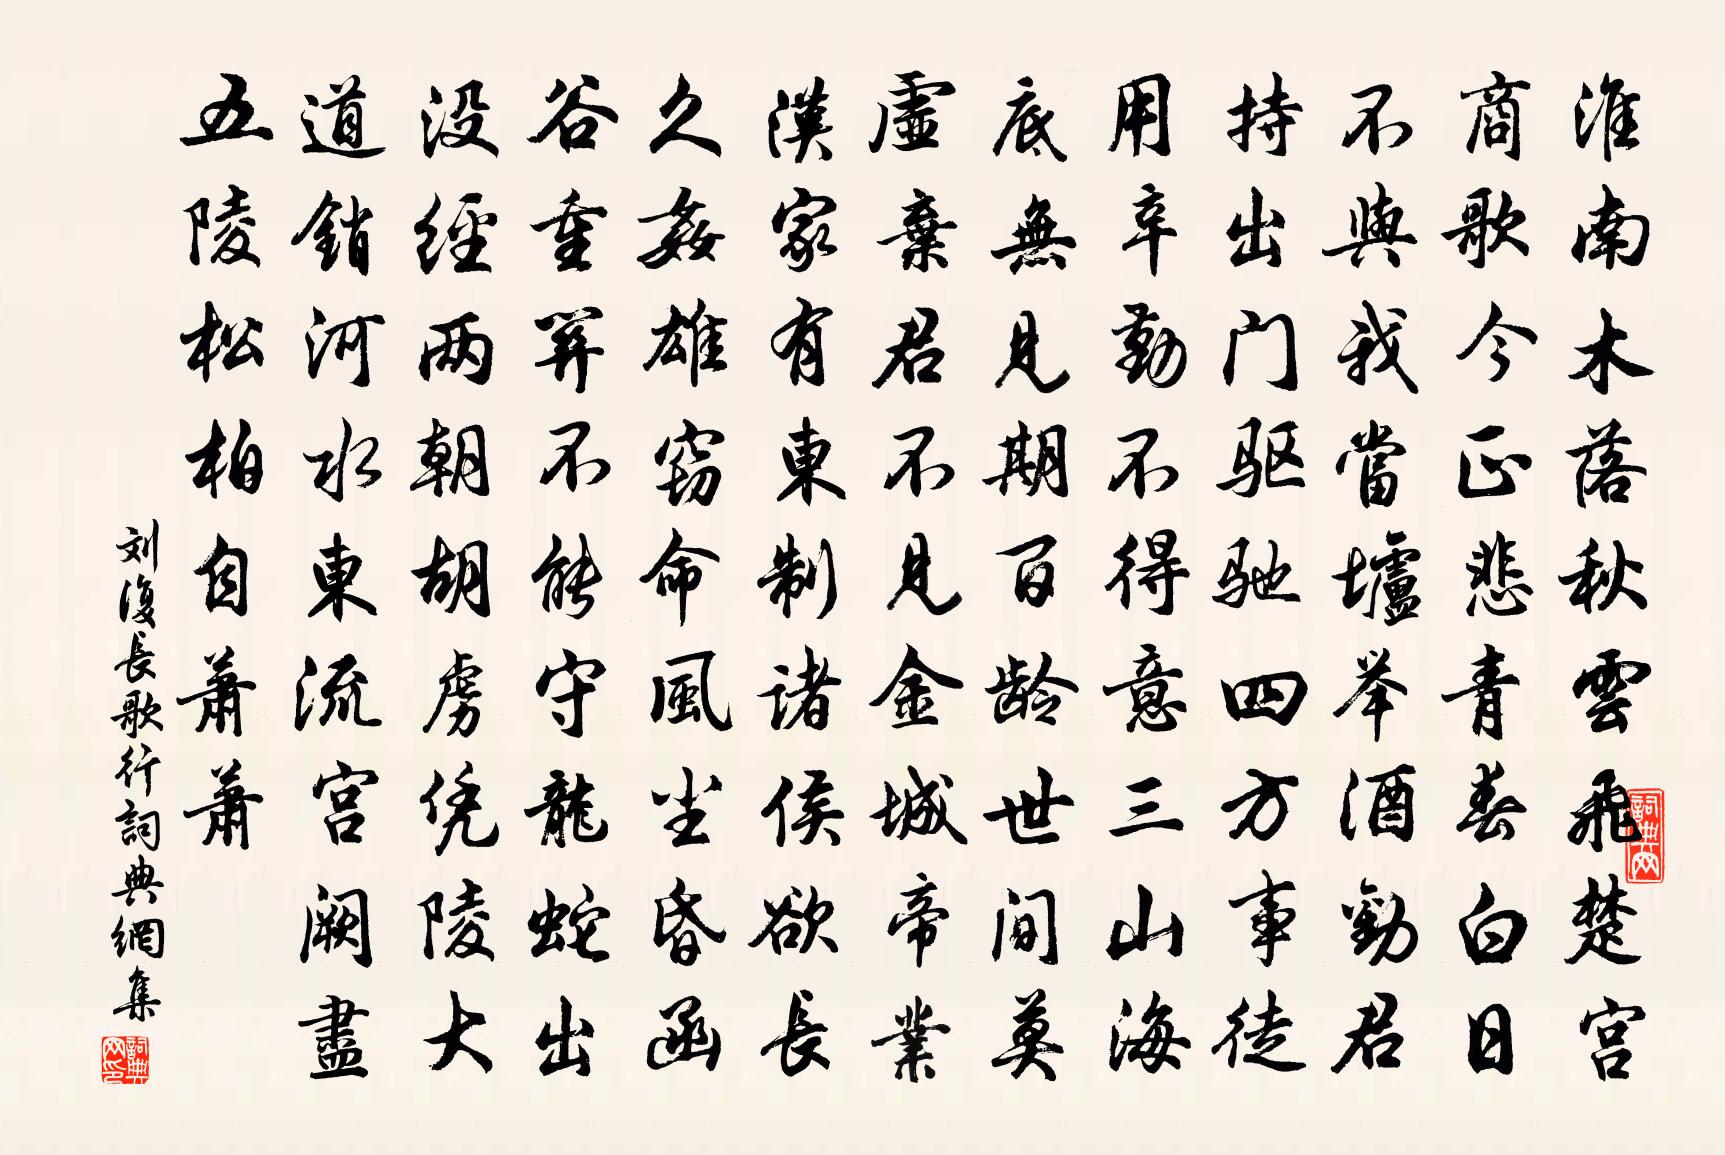 淮南木落秋雲飛楚宫
商歌今正悲青春白日
不與我當壚举酒勸君
持出门驱驰四方事徒
用辛勤不得意三山海
底無見期百龄世间莫
虚棄君不見金城帝業
漢家有東制诸侯欲長
久姦雄窃命風尘昏函
谷重關不能守龍蛇出
没經两朝胡虏凭陵大
道銷河水東流宫阙盡
五陵松柏自蕭蕭
刘復長歌行詞典網集
詞典网
詞典网印